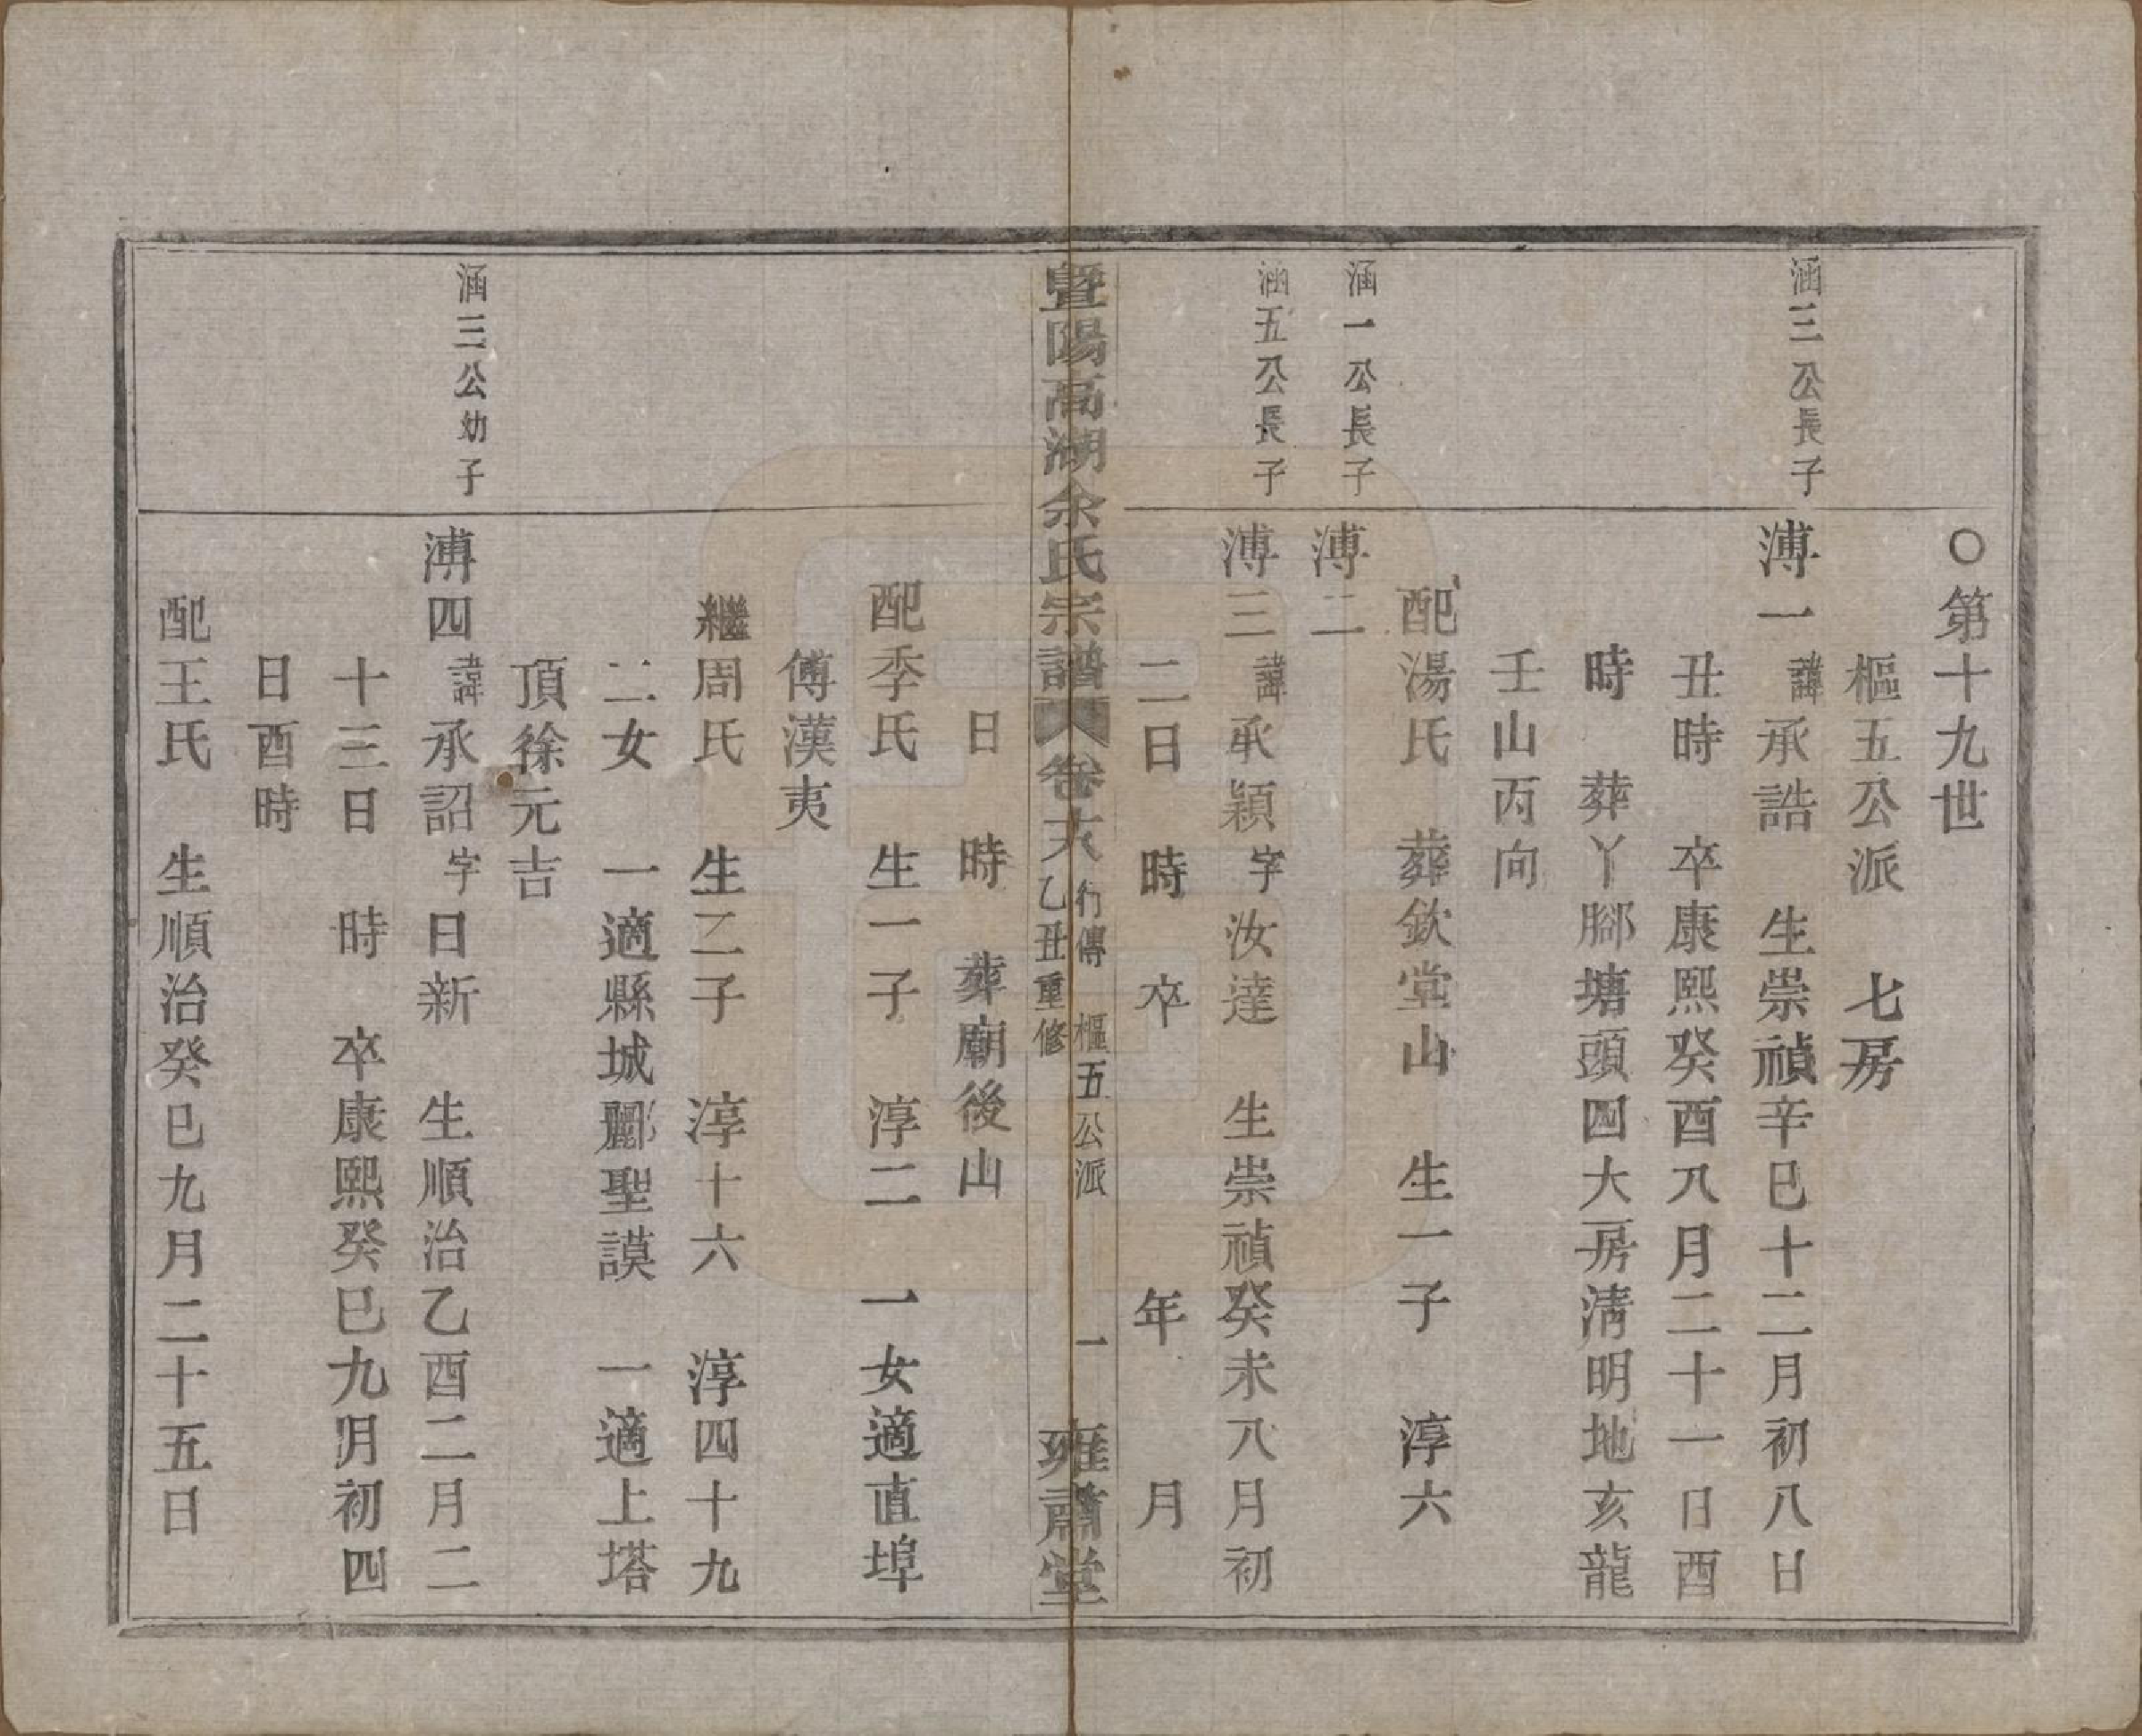 〇第十九世
樞五公派 七房
涵三公長子
溥一 諱承誥 生崇禎辛巳十二月初八日
丑時 卒康熙癸酉八月二十一日酉
時 葬丫腳塘頭四大房淸明地亥龍
壬山丙向
配湯氏 葬欽堂山 生一子 淳六
涵一公長子
溥二
涵五公長子
溥三 諱承穎字汝達 生崇禎癸未八月初
二日 時 卒 年 月
暨陽高湖余氏宗譜 卷六 行傳 樞五公派 乙丑重修 一 雍肅堂
日 時 葬廟後山
配季氏 生一子 淳二 一女適直埠
傅漢夷
繼周氏 生二子 淳十六 淳四十九
二女 一適縣城酈聖謨 一適上塔
頂徐元吉
涵三公幼子
溥四 諱承詔字日新 生順治乙酉二月二
十三日 時 卒康熙癸巳九月初四
日酉時
配王氏 生順治癸巳九月二十五日